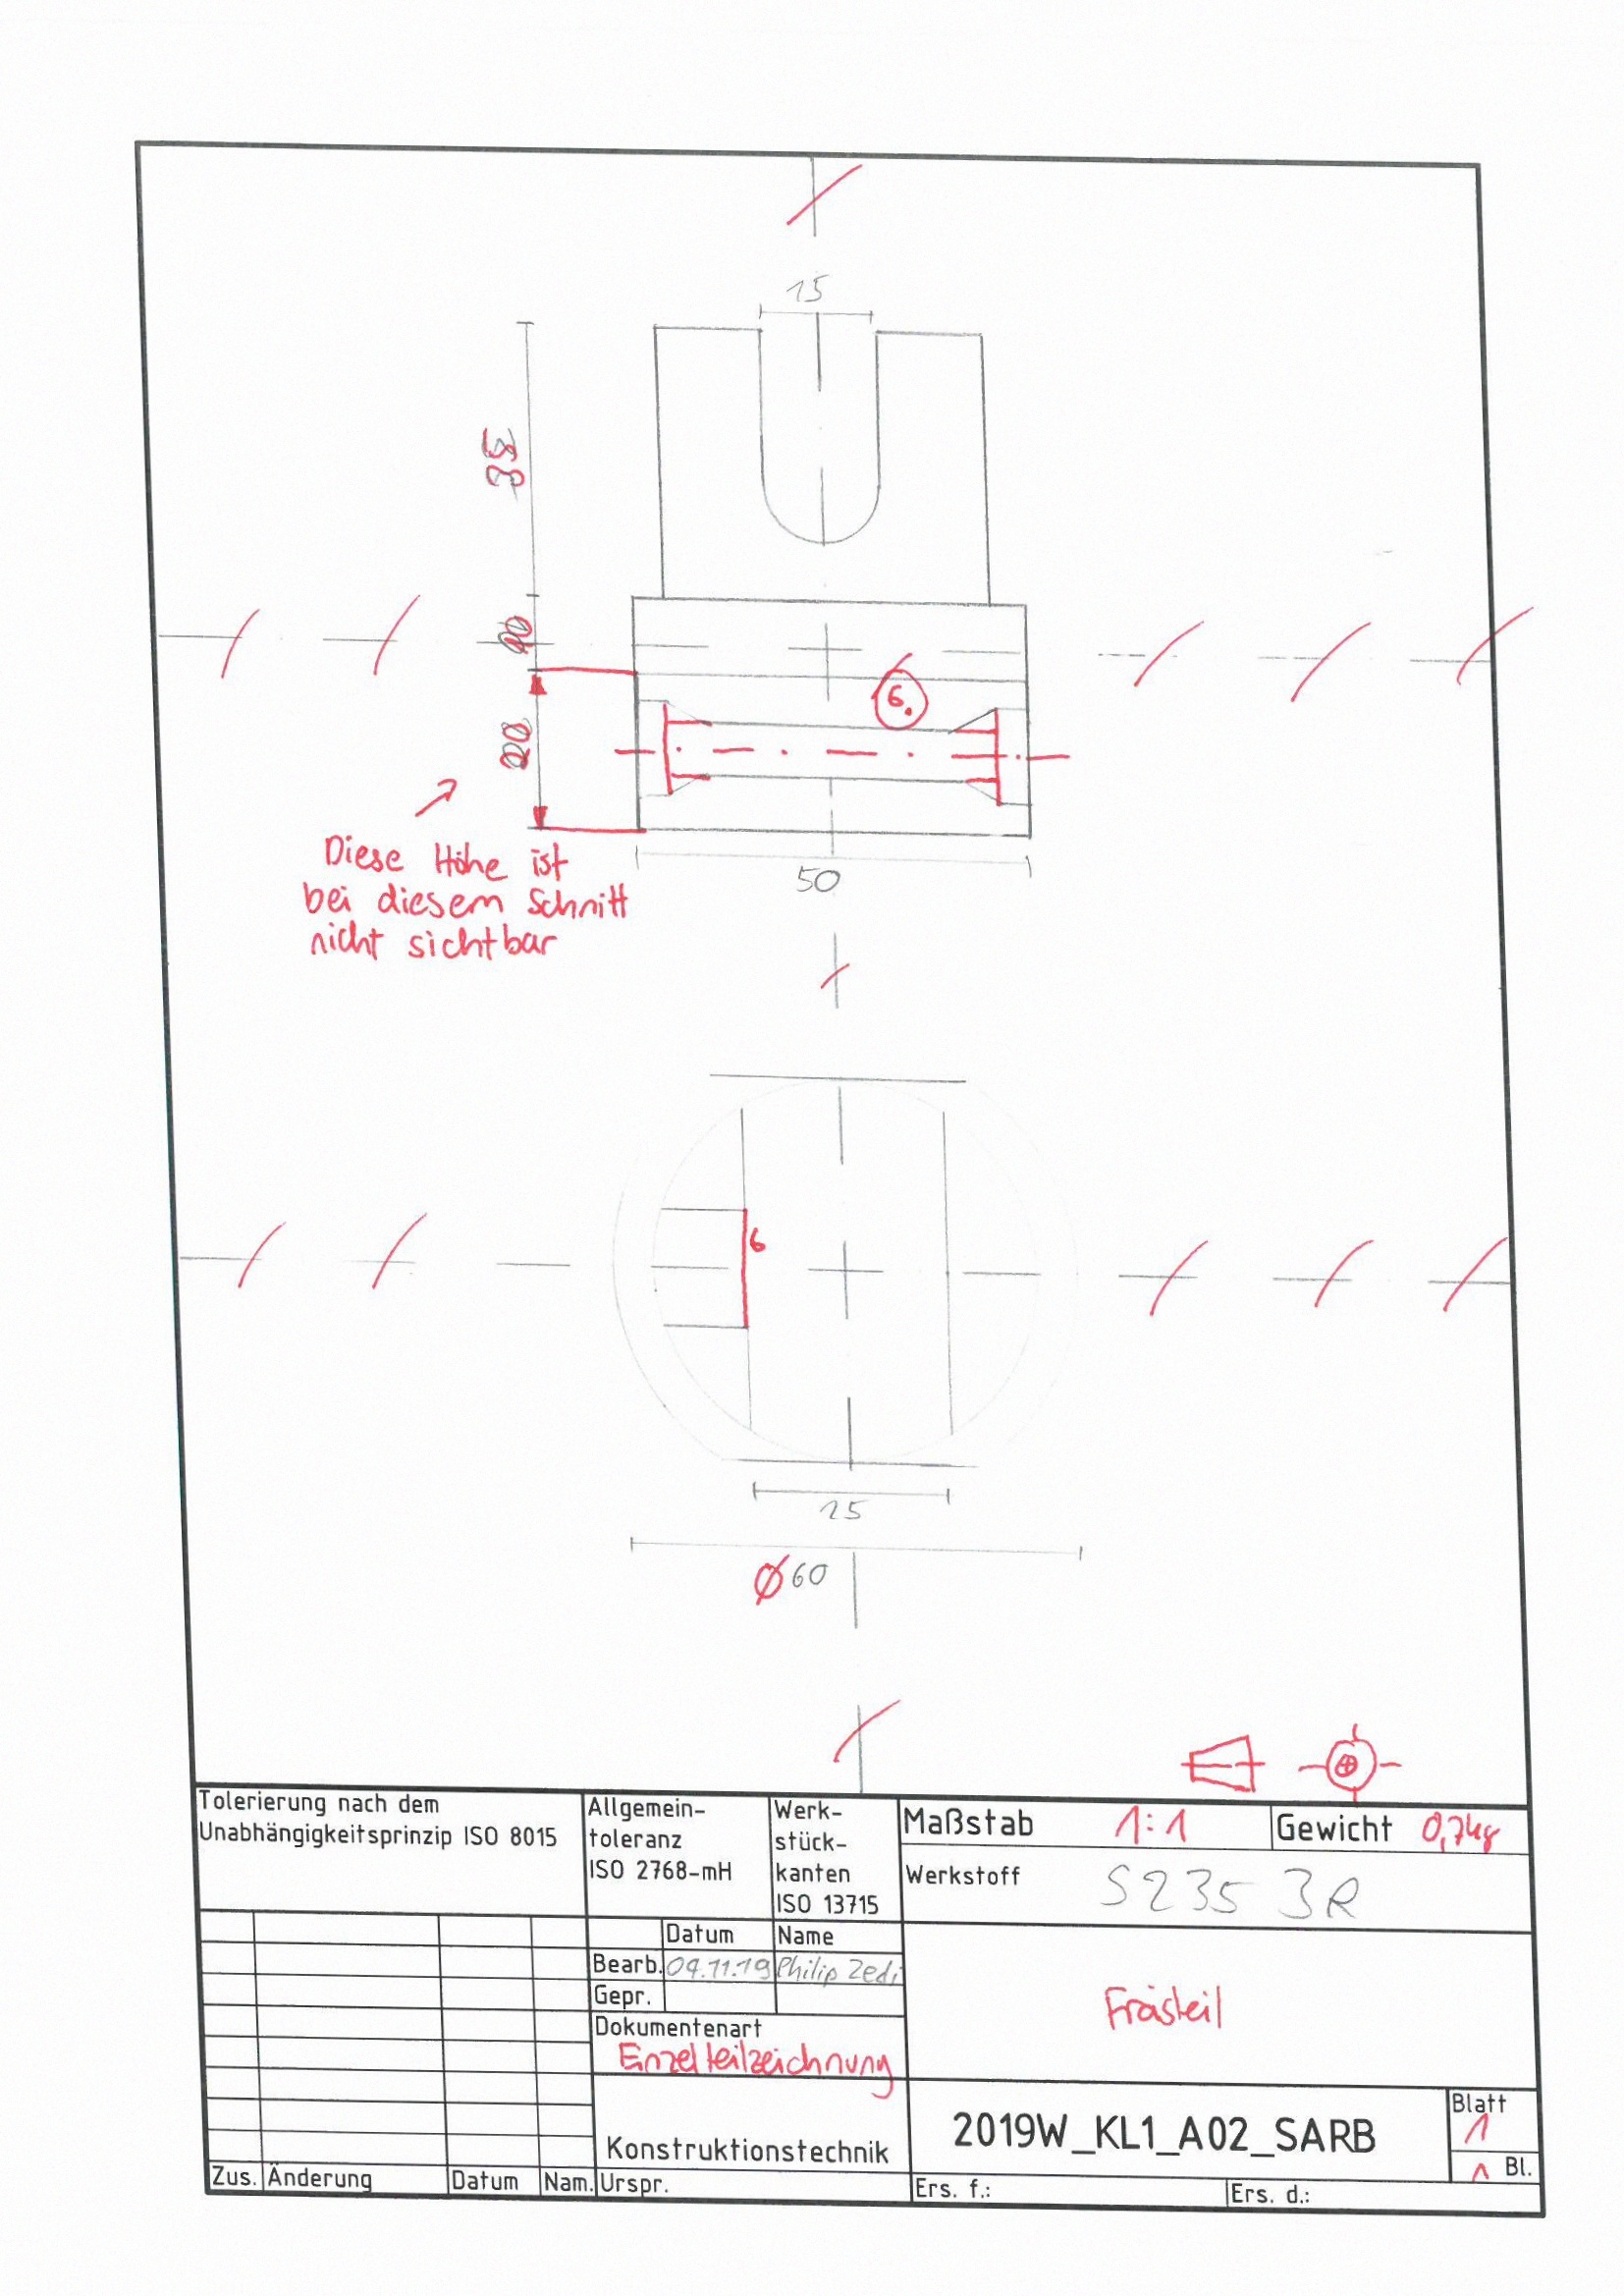 15
35
10
6.
20
Diese Höhe ist
bei diesem Schnitt
nicht sichtbar
50
6
25
Ø60
Tolerierung nach dem
Unabhängigkeitsprinzip ISO 8015
Allgemein-
toleranz
ISO 2768-mH
Werk-
stück-
kanten
ISO 13715
Maßstab 1:1
Gewicht 0,7kg
Werkstoff S235 JR
Datum Name
Bearb. 04.11.19 Philip Zedi
Gepr.
Dokumentenart
Einzelteilzeichnung
Frästeil
Konstruktionstechnik
2019W_KL1_A02_SARB
Blatt
1
1 Bl.
Zus. Änderung Datum Nam. Urspr.
Ers. f.: Ers. d.: